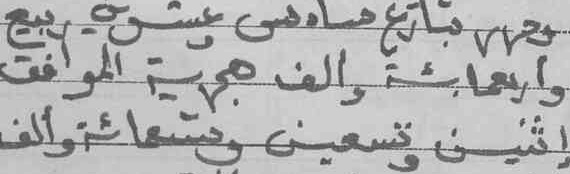 وحرر بتاريخ سادس وعشرين ربيع
واربعمائة والف هجرية الموافق
اثنين وتسعين وتسعمائة والف